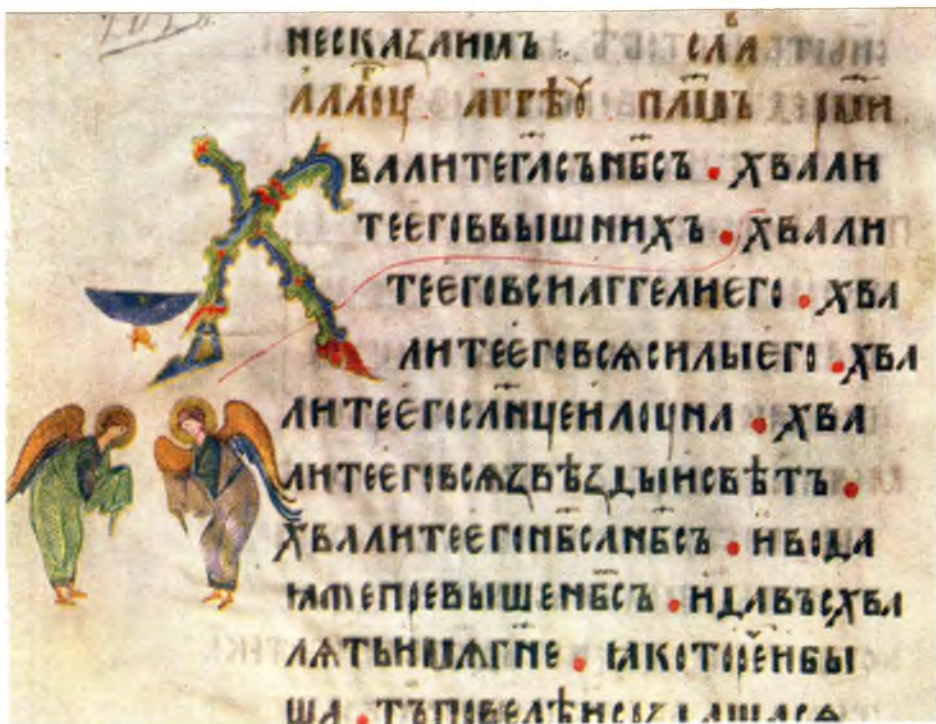 НЕСКАꙀАНИМЪ СЛ҇А
ХВАЛИТЕГ҃АСЪНБ҃СЪ • ХВАЛИ
ТЕЕГОВВЫШНИХЪ • ХВАЛИ
ТЕЕГОВСИАГГЕЛИЕГО • ХВА
ЛИТЕЕГОВСѦСИЛЫЕГО • ХВА
ЛИТЕЕГОСЛН҃ЦЕИЛОУНА • ХВА
ЛИТЕЕГОВСѦꙀВѢꙀДЫИСВѢТЪ •
ХВАЛИТЕЕГОНБ҃САНБ҃СЪ • ИВОДА
ꙖЖЕПРЕВЫШЕНБ҃СЪ • ИДАВЪСХВА
ЛѦТЬИМѦГН҃Е • ꙖКОТОРЕЧЕИБЫ
ША • ТЪПОВЕЛѢИСОꙀДАШАСѦ